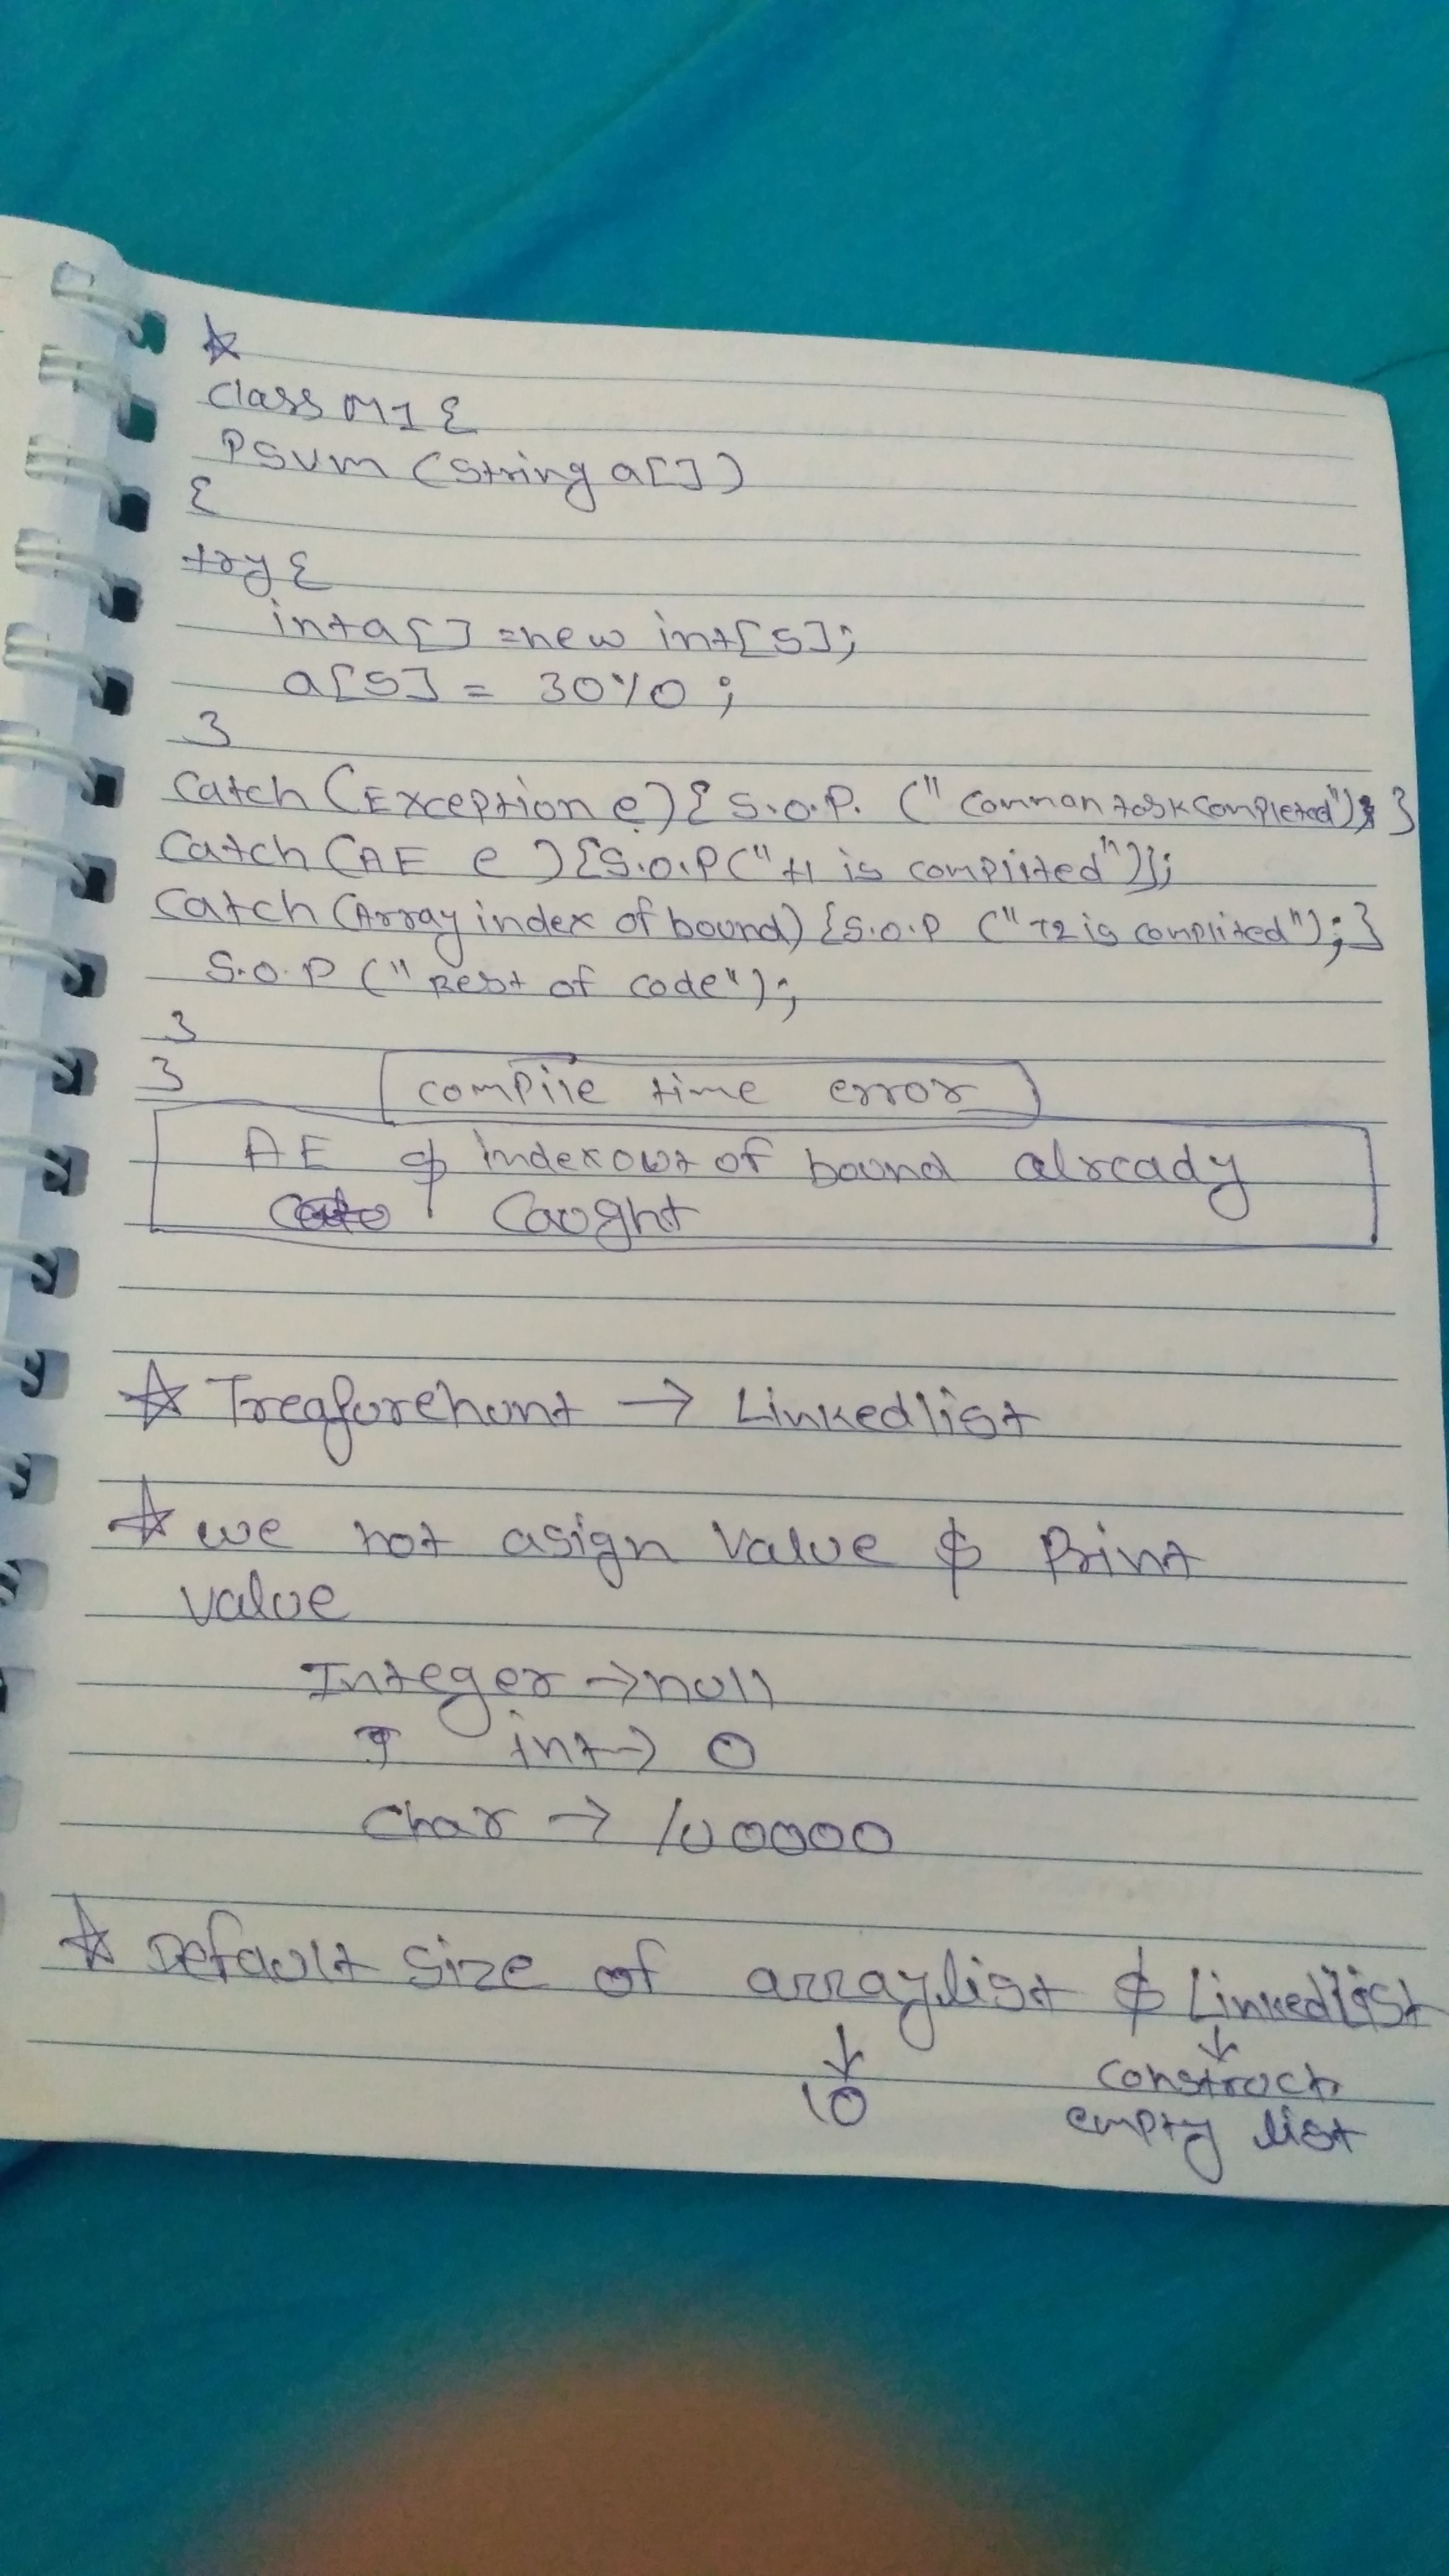 class M1 {
PSVM (String a[])
{
try {
int a[] = new int[5];
a[5] = 30%0;
}
Catch (Exception e) { S.O.P. ("Common task completed"); }
Catch (AE e) { S.O.P ("t1 is complited") };
Catch (Array index of bound) { S.O.P ("T2 is complited"); }
S.O.P ("Rest of code");
}
} compile time error
AE & index out of bound already
Caught
☆ → Linkedlist
☆ we not asign value & Print
value
Integer → null
int → 0
char → /u0000
☆ Default size of arraylist & Linkedlist
↓ ↓
10 construct
empty list